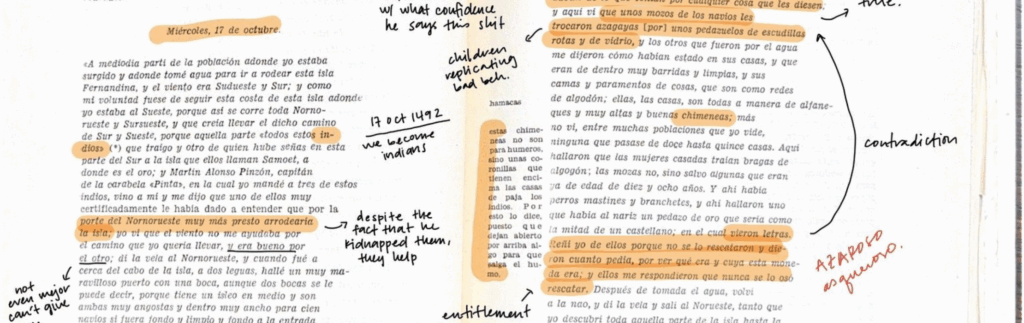 Miércoles, 17 de octubre.
«A mediodía parti de la población adonde yo estaba
surgido y adonde tomé agua para ir a rodear esta isla
Fernandina, y el viento era Sudueste y Sur; y como
mi voluntad fuese de seguir esta costa de esta isla adonde
yo estaba al Sueste, porque así se corre toda Noro-
rueste y Sursueste, y que creía llevar el dicho camino
de Sur y Sueste, porque aquella parte «todos estos in-
dios» (*) que traigo y otro de quien hube señas en esta
parte del Sur a la isla que ellos llaman Samoet, a
donde es el oro; y Martín Alonso Pinzón, capitán
de la carabela «Pinta», en la cual yo mandé a tres de estos
indios, vino a mí y me dijo que uno de ellos muy
certificadamente le había dado a entender que por la
parte del Nornorueste muy más presto arrodearía
la isla; yo vi que el viento no me ayudaba por
el camino que yo quería llevar, y era bueno por
el otro; di la vela al Nornorueste, y cuando fué a
cerca del cabo de la isla, a dos leguas, hallé un muy ma-
ravilloso puerto con una boca, aunque dos bocas se le
puede decir, porque tiene un isleo en medio y son
ambas muy angostas y dentro muy ancho para cien
navíos si fuera fondo y limpio y fondo a la entrada
not
even mejor
can't give
17 oct 1492
we become
indians
despite the
fact that he
kidnapped them,
they help
w/ what confidence
he says this shit
children
replicating
bad beh.
cualquier cosa que les diesen.
y aquí vi que unos mozos de los navíos les
trocaron azagayas [por] unos pedazuelos de escudillas
rotas y de vidrio, y los otros que fueron por el agua
me dijeron cómo habían estado en sus casas, y que
eran de dentro muy barridas y limpias, y sus
camas y paramentos de cosas, que son como redes
de algodón; ellas, las casas, son todas a manera de alfane-
ques y muy altas y buenas chimeneas; más
no vi, entre muchas poblaciones que yo vide,
ninguna que pasase de doce hasta quince casas. Aquí
hallaron que las mujeres casadas traían bragas de
algodón; las mozas no, sino salvo algunas que eran
ya de edad de diez y ocho años. Y ahí había
perros mastines y branchetes, y ahí hallaron uno
que había al nariz un pedazo de oro que sería como
la mitad de un castellano; en el cual vieron letras.
Reñí yo de ellos porque no se lo rescataron y die-
ron cuanto pedía, por ver qué era y cuya esta mone-
da era; y ellos me respondieron que nunca se lo osó
rescatar. Después de tomada el agua, volví
a la nao, y di la vela y salí al Norueste, tanto que
yo descubrí toda aquella parte de la isla hasta la
hamacas
estas chime-
neas no son
para humeros,
sino unas co-
ronillas que
tienen enci-
ma las casas
de paja los
indios. Por
esto lo dice,
puesto que
dejan abierto
por arriba al-
go para que
salga el hu-
mo.
entitlement
true.
contradiction
AZAROSO
asqueroso.